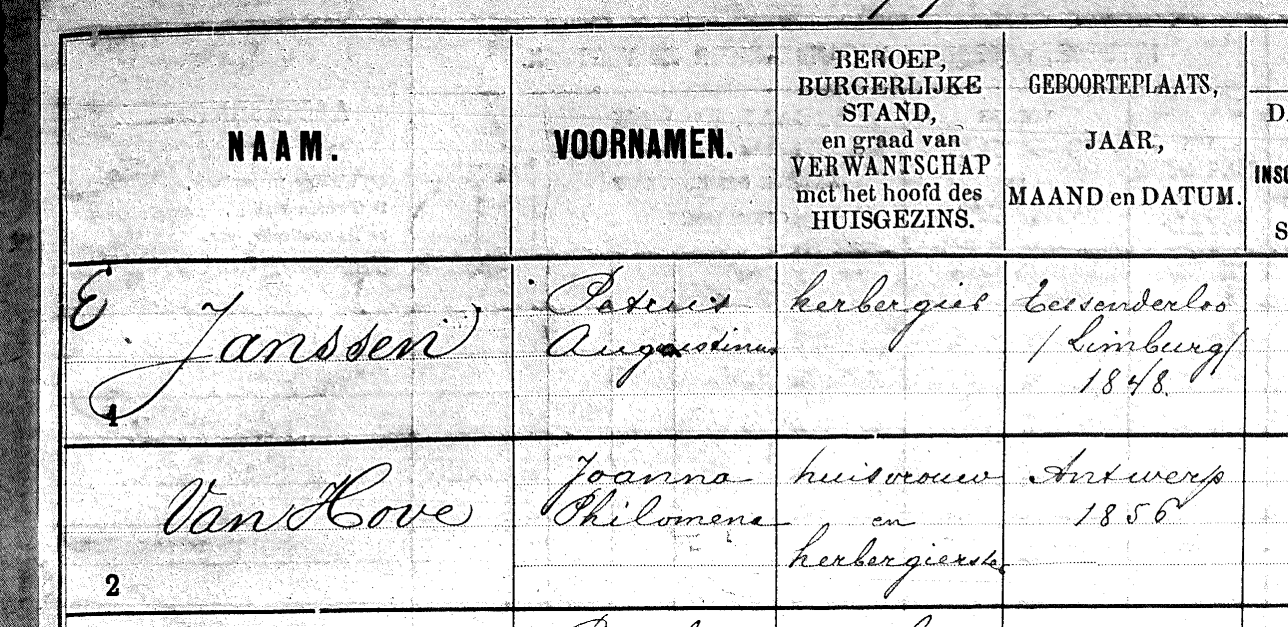 NAAM.
VOORNAMEN.
BEROEP,
BURGERLIJKE
STAND,
en graad van
VERWANTSCHAP
met het hoofd des
HUISGEZINS.
GEBOORTEPLAATS,
JAAR,
MAAND en DATUM.
E
Janssen
1
Petrus
Augustinus
herbergier
Tessenderloo
/Limburg/
1848.
Van Hove
2
Joanna
Philomena
huisvrouw
en
herbergierster
Antwerp
1856